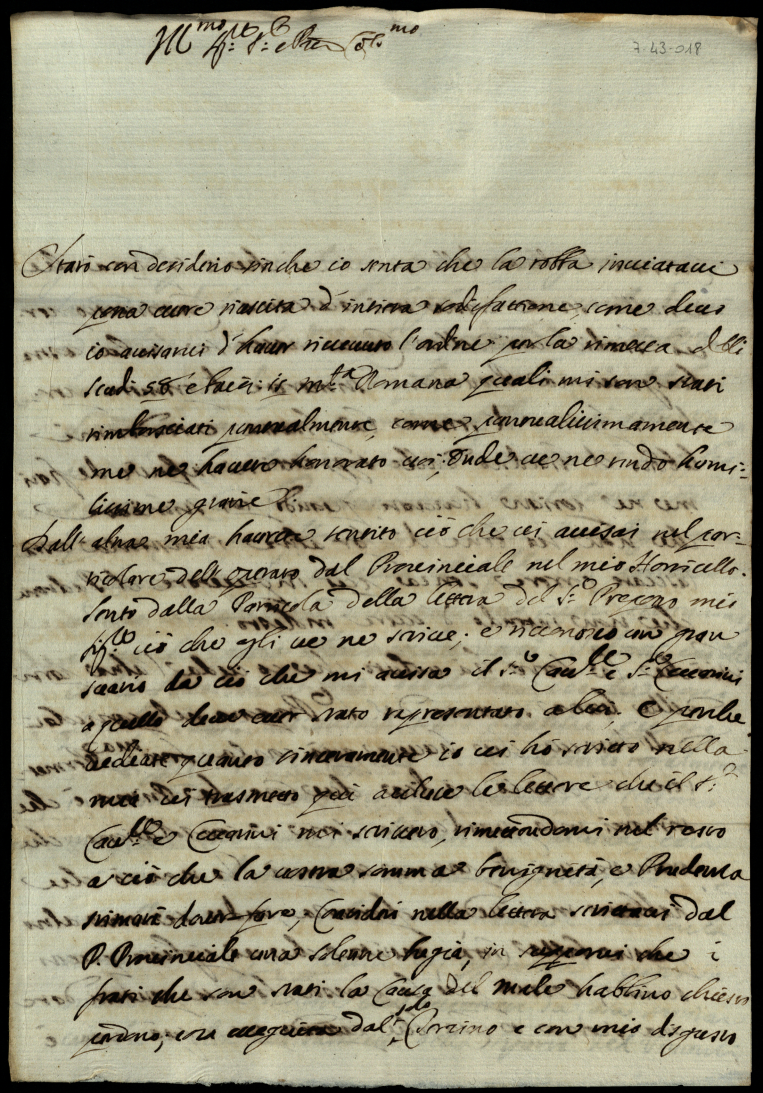 Ill.mo Sig.re S.r e Pron Col.mo
7-43-018
Starò con desiderio sinche io senta che la robba inviatavi
possa essere riuscita d'intiera sodisfattione, come devo
io avisarvi d'haver ricevuto l'ordine per la rimessa delli
scudi 58 e baj: 15 m.ta Romana quali mi son stati
rimborsati pontualmente, come pontualissimamente
me ne havete honorato voi; onde ve ne rendo humi-
lissime gratie
Dall'altra mia havrete sentito ciò che vi avisai nel par-
ticolare dell'operato dal Provinciale nel mio Monticello.
Sento dalla Particola della lettera del S.r Preposto mio
Sig.re ciò che egli ve ne scrive; e riconosco un gran
svario da ciò che mi avisa il S.r Cav.re e S.r Ceccrini
a quello deve esser stato rapresentato a lui; e perche
vediate quanto sinceramente io vi hò scritto nella
mia vi trasmetto qui acluse le lettere che il S.r
Cav.re e Ceccrini mi scrivero, rimettendomi nel resto
a ciò che la vostra somma benignità, e Prudenza
stimarà dover fare, Considri nella lettera scrittavi dal
P. Provinciale una solenne bugia, in supporvi che i
frati che son stati la Causa del male habbino chiesto
perdono, con dal solo e con mio disgusto